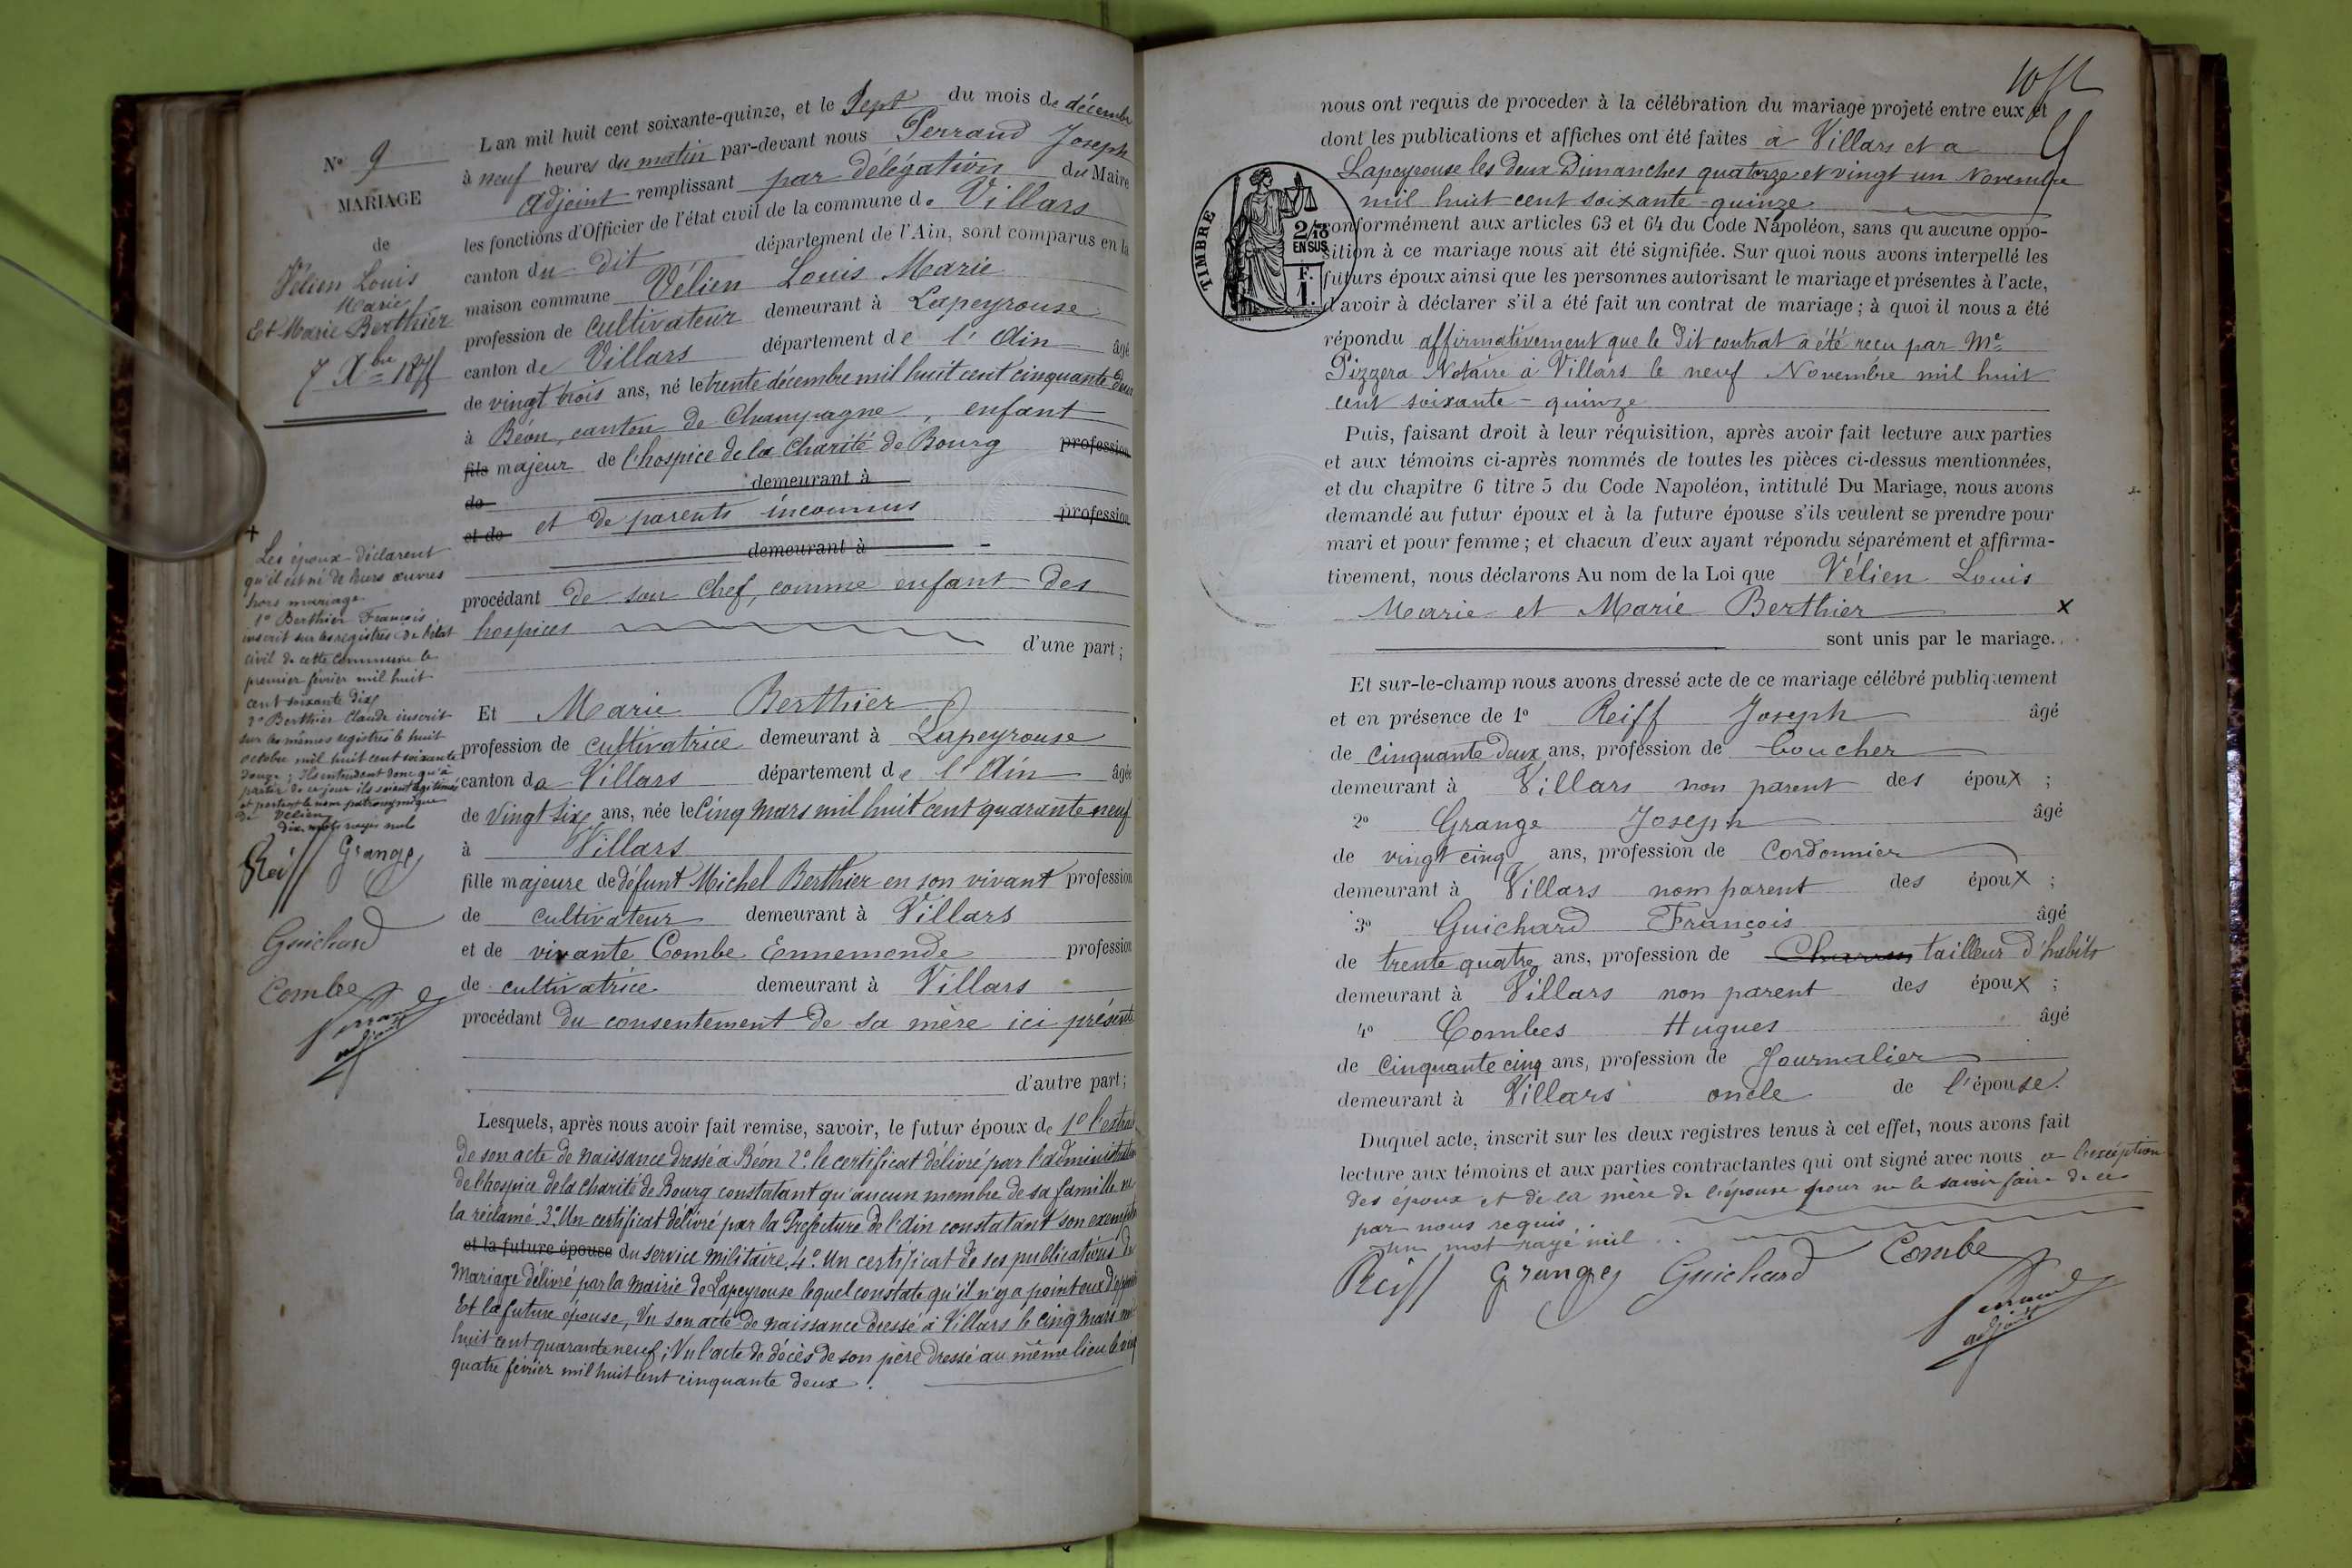 N° 9
MARIAGE
de
Vélien Louis
Marie
Et Marie Berthier
7 Xbre 1875
L an mil huit cent soixante-quinze, et le Sept du mois de décembre
à neuf heures du matin par-devant nous Perraud Joseph
adjoint remplissant par délégation du Maire
les fonctions d'Officier de l'état civil de la commune de Villars
canton du dit département de l'Ain, sont comparus en la
maison commune Vélien Louis Marie
profession de cultivateur demeurant à Lapeyrouse
canton de Villars département de l'Ain âgé
de vingt trois ans, né le trente décembre mil huit cent cinquante deux
à Béon, canton de Champagne, enfant
fils majeur de l'hospice de la Charité de Bourg profession
de demeurant à
et de et de parents inconnus profession
demeurant à
procédant de son Chef, comme enfant des
hospices
d'une part;
Et Marie Berthier
profession de cultivatrice demeurant à Lapeyrouse
canton de Villars département de l'Ain âgée
de vingt six ans, née le Cinq mars mil huit cent quarante neuf
à Villars
fille majeure de défunt Michel Berthier en son vivant profession
de cultivateur demeurant à Villars
et de vivante Combe Ennemonde profession
de cultivatrice demeurant à Villars
procédant du consentement de sa mère ici présente
d'autre part;
Lesquels, après nous avoir fait remise, savoir, le futur époux de 1° l'extrait
de son acte de naissance dressé à Béon 2° le certificat délivré par l'administration
de l'hospice de la Charité de Bourg constatant qu'aucun membre de sa famille ne
la réclamé 3° Un certificat délivré par la Préfecture de l'Ain constatant son exemption
et la future épouse du service militaire, 4° Un certificat de ses publications de
Mariage délivré par la mairie de Lapeyrouse lequel constate qu'il n'y a point eu d'opposition
Et la future épouse, Vu son acte de naissance dressé à Villars le cinq mars mil
huit cent quarante neuf; Vu l'acte de décès de son père dressé au même lieu le vingt
quatre février mil huit cent cinquante deux.
+
Les époux déclarent
qu'il est né de leurs œuvres
hors mariage
1° Berthier François
inscrit sur les registres de l'état
civil de cette commune le
premier février mil huit
cent soixante dix
2° Berthier Claude inscrit
sur les mêmes registres le huit
octobre mil huit cent soixante
douze; Ils entendent donc qu'à
partir de ce jour ils soient légitimés
et portent le nom patronymique
de Vélien
dix mots rayés nuls
Reiff Grange
Guichard
Combe
Perraud
adjoint
nous ont requis de proceder à la célébration du mariage projeté entre eux et
dont les publications et affiches ont été faites à Villars et a
Lapeyrouse les deux Dimanches quatorze et vingt un Novembre
mil huit cent soixante-quinze
TIMBRE
2/10
EN SUS
F.
1.
conformément aux articles 63 et 64 du Code Napoléon, sans qu aucune oppo-
sition à ce mariage nous ait été signifiée. Sur quoi nous avons interpellé les
futurs époux ainsi que les personnes autorisant le mariage et présentes à l'acte,
d'avoir à déclarer s'il a été fait un contrat de mariage; à quoi il nous a été
répondu affirmativement que le dit contrat a été reçu par Me
Pizzera Notaire à Villars le neuf Novembre mil huit
cent soixante-quinze
Puis, faisant droit à leur réquisition, après avoir fait lecture aux parties
et aux témoins ci-après nommés de toutes les pièces ci-dessus mentionnées,
et du chapitre 6 titre 5 du Code Napoléon, intitulé Du Mariage, nous avons
demandé au futur époux et à la future épouse s'ils veulent se prendre pour
mari et pour femme; et chacun d'eux ayant répondu séparément et affirma-
tivement, nous déclarons Au nom de la Loi que Vélien Louis
Marie et Marie Berthier x
sont unis par le mariage.
Et sur-le-champ nous avons dressé acte de ce mariage célébré publiquement
et en présence de 1° Reiff Joseph âgé
de cinquante deux ans, profession de boucher
demeurant à Villars non parent des époux;
2° Grange Joseph âgé
de vingt cinq ans, profession de Cordonnier
demeurant à Villars non parent des époux;
3° Guichard François âgé
de trente quatre ans, profession de Charron tailleur d'habits
demeurant à Villars non parent des époux;
4° Combes Hugues âgé
de Cinquante cinq ans, profession de Journalier
demeurant à Villars oncle de l'épouse.
Duquel acte, inscrit sur les deux registres tenus à cet effet, nous avons fait
lecture aux témoins et aux parties contractantes qui ont signé avec nous a l'exception
des époux et de la mère de l'épouse pour ne le savoir faire de ce
par nous requis.
un mot rayé nul
Reiff Grange Guichard Combe
Perraud
adjoint